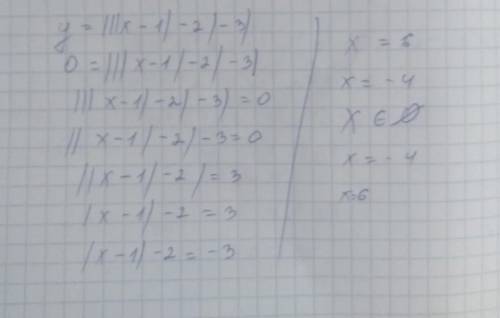 y = |||x - 1| - 2| - 3|
0 = ||| x - 1| - 2| - 3|
||| x - 1| - 2| - 3| = 0
|| x - 1| - 2| - 3 = 0
||x - 1| - 2| = 3
|x - 1| - 2 = 3
|x - 1| - 2 = -3
x = 6
x = -4
X ∈ ∅
x = -4
x=6